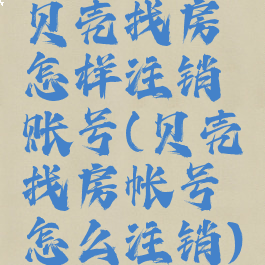 贝壳找房
怎样注销
账号(贝壳
找房帐号
怎么注销)